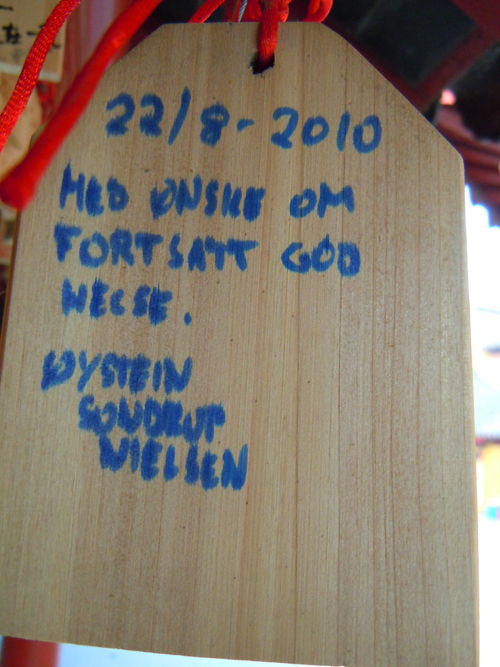 22/8-2010
MED ØNSKE OM
FORTSATT GOD
HELSE.
ØYSTEIN
SONDRUP
NIELSEN